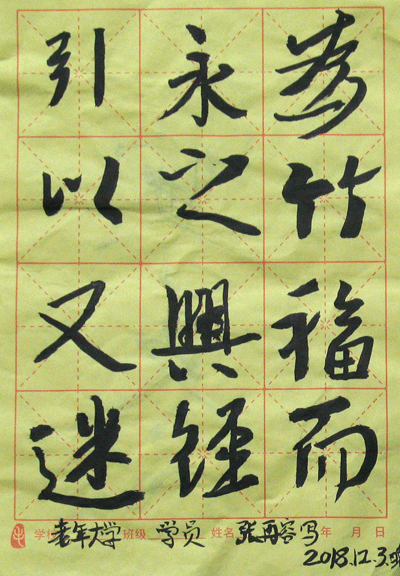 竹福而
永之興
引以又迷
老年大学 班级 学员 姓名 张再容写 年 月 日
2018.12.3